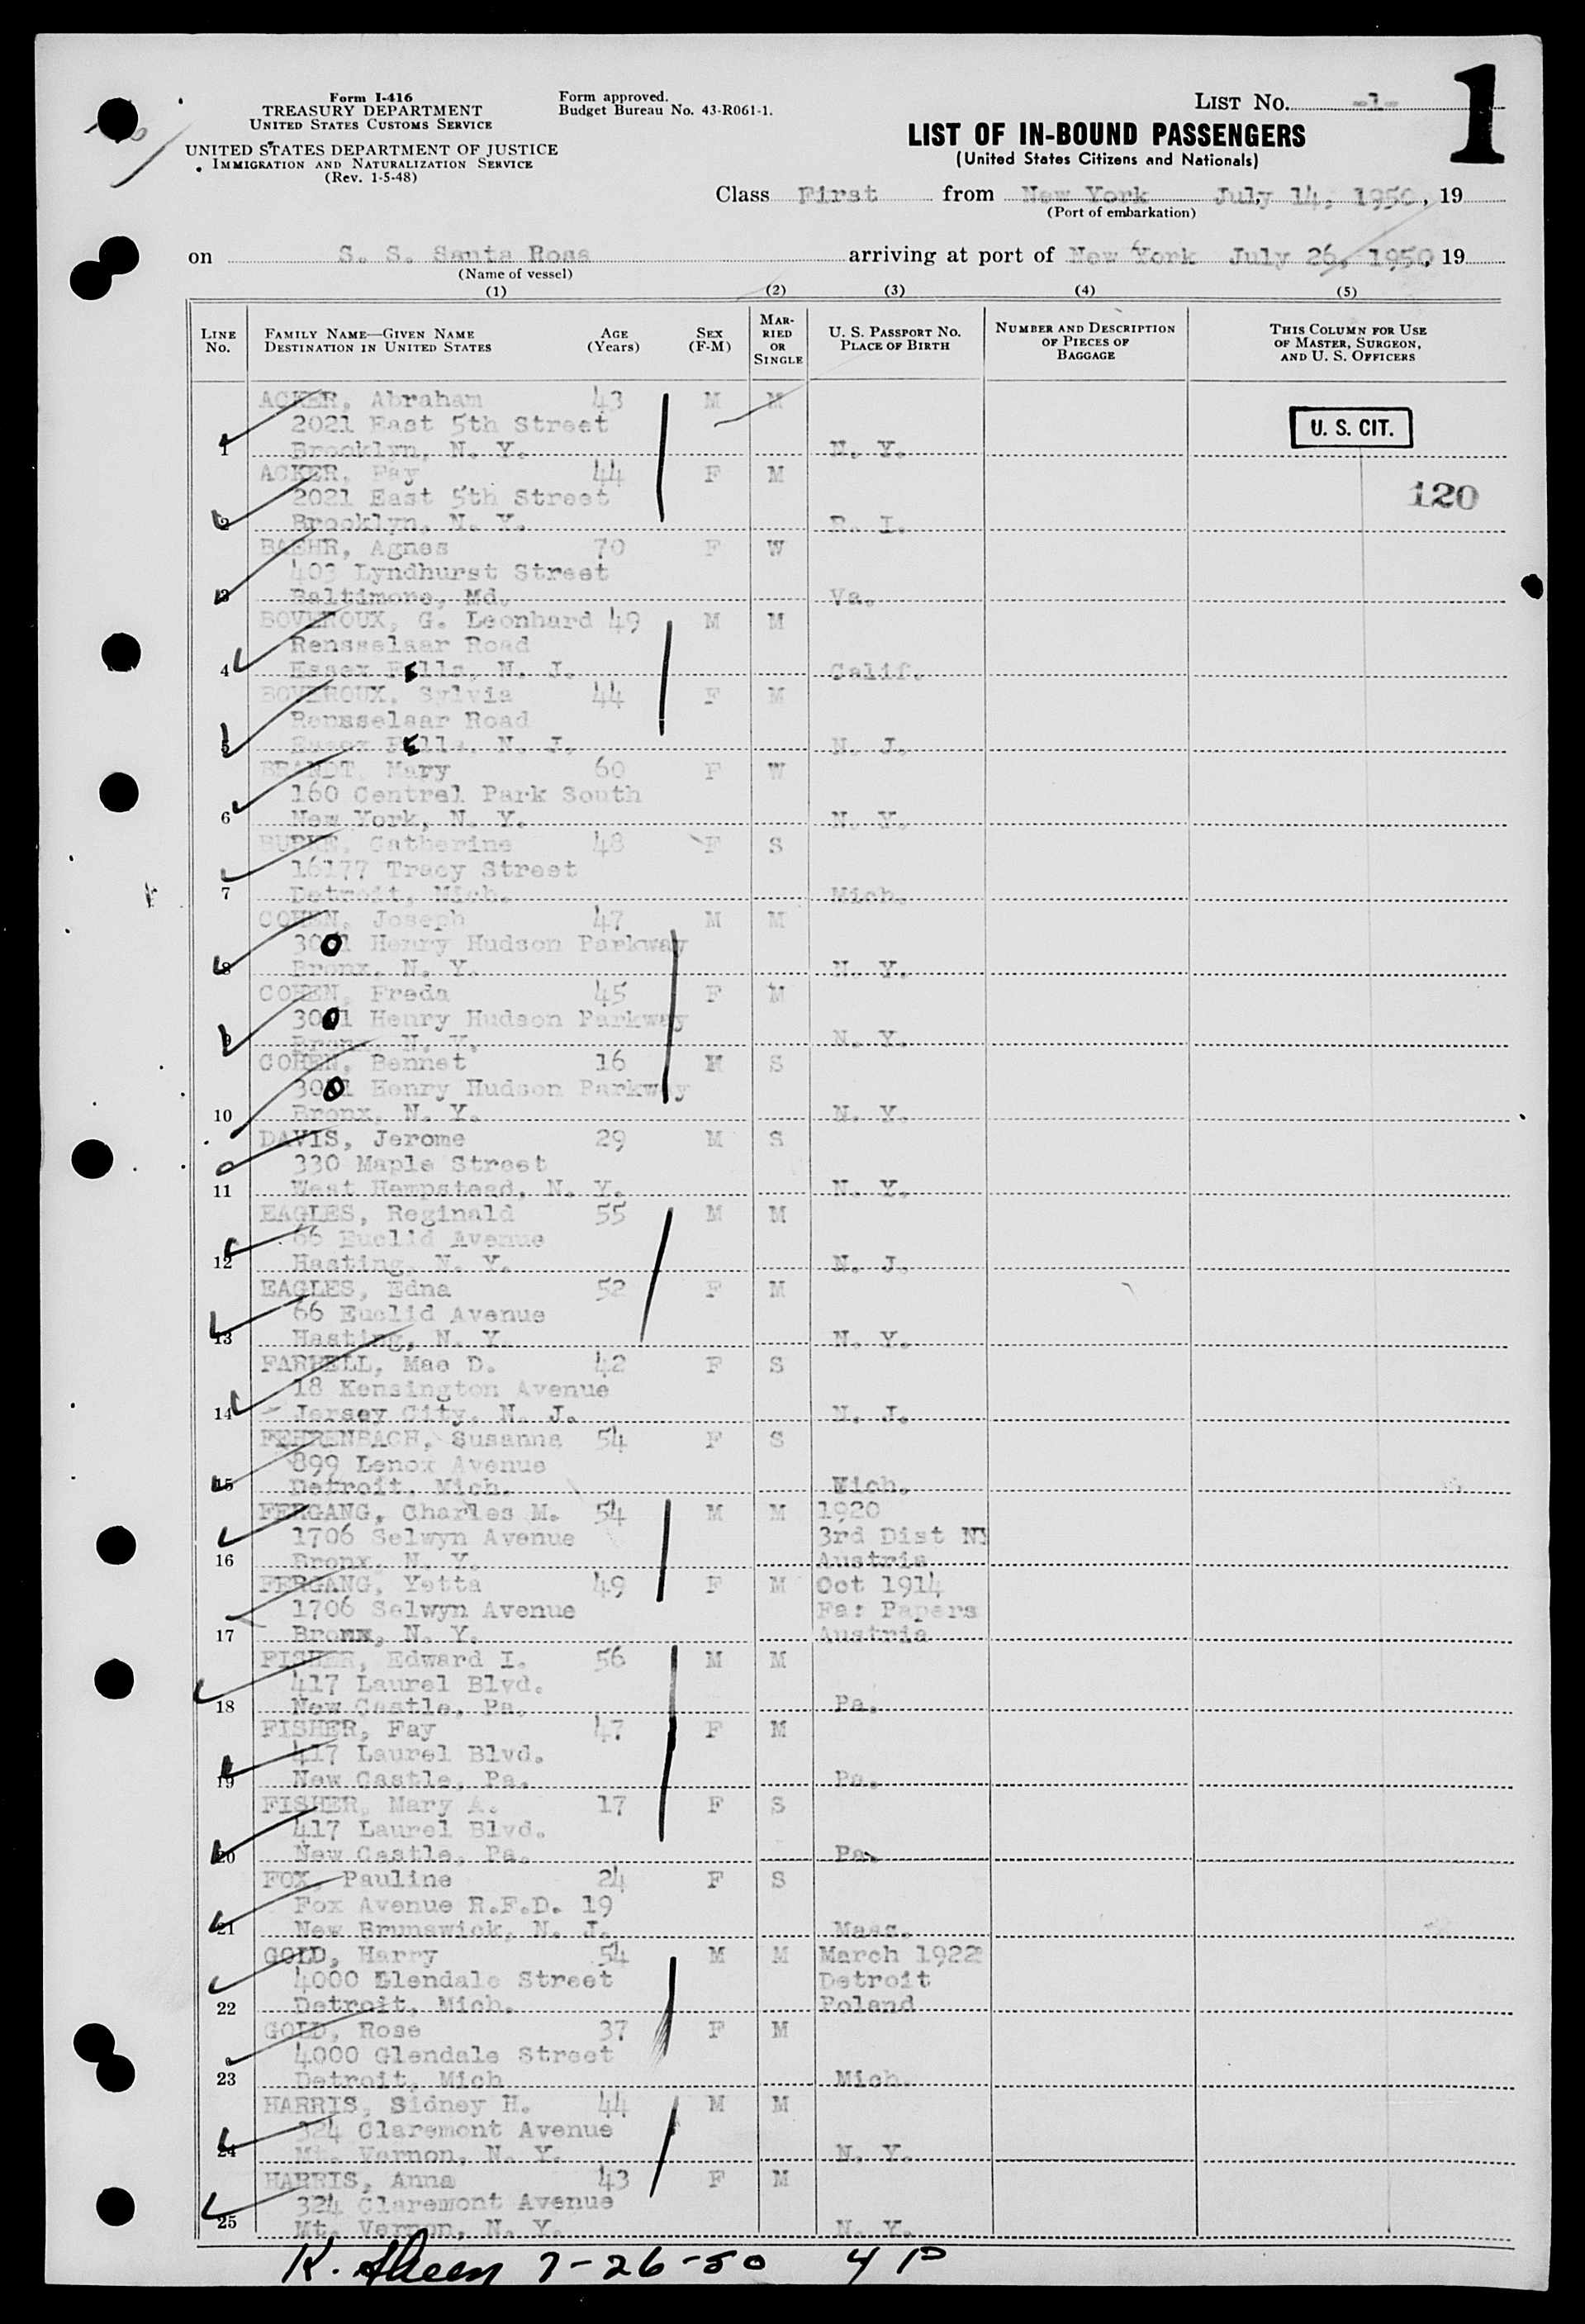 Form I-416
TREASURY DEPARTMENT
UNITED STATES CUSTOMS SERVICE
UNITED STATES DEPARTMENT OF JUSTICE
IMMIGRATION AND NATURALIZATION SERVICE
(Rev. 1-5-48)
Form approved.
Budget Bureau No. 43-R061-1.
LIST No. -1-
1
LIST OF IN-BOUND PASSENGERS
(United States Citizens and Nationals)
Class First from New York July 14, 1950, 19
(Port of embarkation)
on S. S. Santa Rosa arriving at port of New York July 26, 1950, 19
(Name of vessel)
(1) (2) (3) (4) (5)
LINE No.
FAMILY NAME—GIVEN NAME
DESTINATION IN UNITED STATES
AGE (Years)
SEX (F-M)
MARRIED OR SINGLE
U. S. PASSPORT NO.
PLACE OF BIRTH
NUMBER AND DESCRIPTION OF PIECES OF BAGGAGE
THIS COLUMN FOR USE OF MASTER, SURGEON, AND U. S. OFFICERS
ACKER, Abraham 43 M M
2021 East 5th Street
1 Brooklyn, N. Y. N. Y.
U. S. CIT.
ACKER, Fay 44 F M
2021 East 5th Street
120
2 Brooklyn, N. Y. R. I.
BAEHR, Agnes 70 F W
403 Lyndhurst Street
3 Baltimore, Md. Va.
BOVEROUX, G. Leonhard 49 M M
Rensselaar Road
4 Essex Fells, N. J. Calif.
BOVEROUX, Sylvia 44 F M
Rensselaar Road
5 Essex Fells, N. J. N. J.
BRANDT, Mary 60 F W
160 Central Park South
6 New York, N. Y. N. Y.
BURKE, Catherine 48 F S
16177 Tracy Street
7 Detroit, Mich. Mich.
COHEN, Joseph 47 M M
3001 Henry Hudson Parkway
8 Bronx, N. Y. N. Y.
COHEN, Freda 45 F M
3001 Henry Hudson Parkway
9 Bronx, N. Y. N. Y.
COHEN, Bennet 16 M S
3001 Henry Hudson Parkway
10 Bronx, N. Y. N. Y.
DAVIS, Jerome 29 M S
330 Maple Street
11 West Hempstead, N. Y. N. Y.
EAGLES, Reginald 55 M M
66 Euclid Avenue
12 Hasting, N. Y. N. J.
EAGLES, Edna 52 F M
66 Euclid Avenue
13 Hasting, N. Y. N. Y.
FARRELL, Mae D. 42 F S
18 Kensington Avenue
14 Jersey City, N. J. N. J.
FEHRENBACH, Susanna 54 F S
899 Lenox Avenue
15 Detroit, Mich. Mich.
FERGANG, Charles M. 54 M M 1920
1706 Selwyn Avenue 3rd Dist NY
16 Bronx, N. Y. Austria
FERGANG, Yetta 49 F M Oct 1914
1706 Selwyn Avenue Fa: Papers
17 Bronx, N. Y. Austria
FISHER, Edward I. 56 M M
417 Laurel Blvd.
18 New Castle, Pa. Pa.
FISHER, Fay 47 F M
417 Laurel Blvd.
19 New Castle, Pa. Pa.
FISHER, Mary A. 17 F S
417 Laurel Blvd.
20 New Castle, Pa. Pa.
FOX, Pauline 24 F S
Fox Avenue R.F.D. 19
21 New Brunswick, N. J. Mass.
GOLD, Harry 54 M M March 1922
4000 Glendale Street Detroit
22 Detroit, Mich. Poland
GOLD, Rose 37 F M
4000 Glendale Street
23 Detroit, Mich Mich.
HARRIS, Sidney H. 44 M M
324 Claremont Avenue
24 Mt. Vernon, N. Y. N. Y.
HARRIS, Anna 43 F M
324 Claremont Avenue
25 Mt. Vernon, N. Y. N. Y.
K. Sheen 7-26-50 4 P